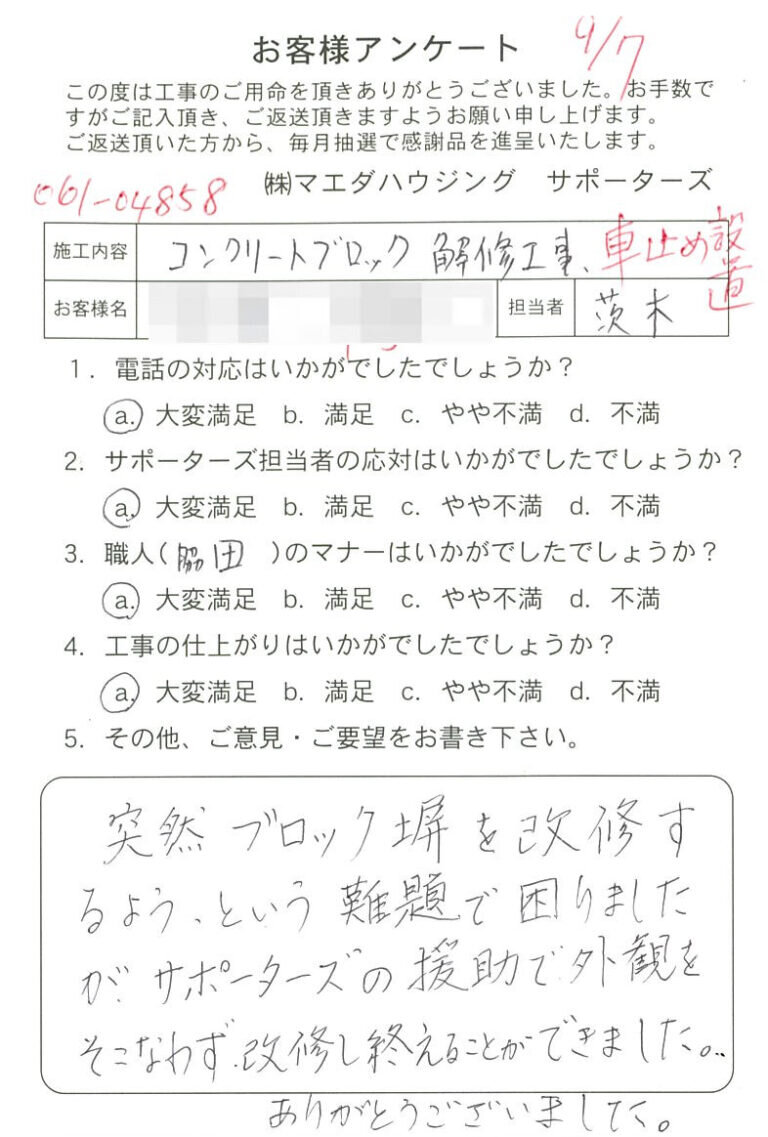 お客様アンケート
9/7
この度は工事のご用命を頂きありがとうございました。お手数で
すがご記入頂き、ご返送頂きますようお願い申し上げます。
ご返送頂いた方から、毎月抽選で感謝品を進呈いたします。
061-04858
㈱マエダハウジング サポーターズ
施工内容 コンクリートブロック 解修工事、車止め設置
お客様名 担当者 茨木
1. 電話の対応はいかがでしたでしょうか？
a. 大変満足 b. 満足 c. やや不満 d. 不満
2. サポーターズ担当者の応対はいかがでしたでしょうか？
a. 大変満足 b. 満足 c. やや不満 d. 不満
3. 職人(脇田)のマナーはいかがでしたでしょうか？
a. 大変満足 b. 満足 c. やや不満 d. 不満
4. 工事の仕上がりはいかがでしたでしょうか？
a. 大変満足 b. 満足 c. やや不満 d. 不満
5. その他、ご意見・ご要望をお書き下さい。
突然ブロック塀を改修す
るよう、という難題で困りました
が、サポーターズの援助で外観を
そこなわず、改修し終えることができました。
ありがとうございました。